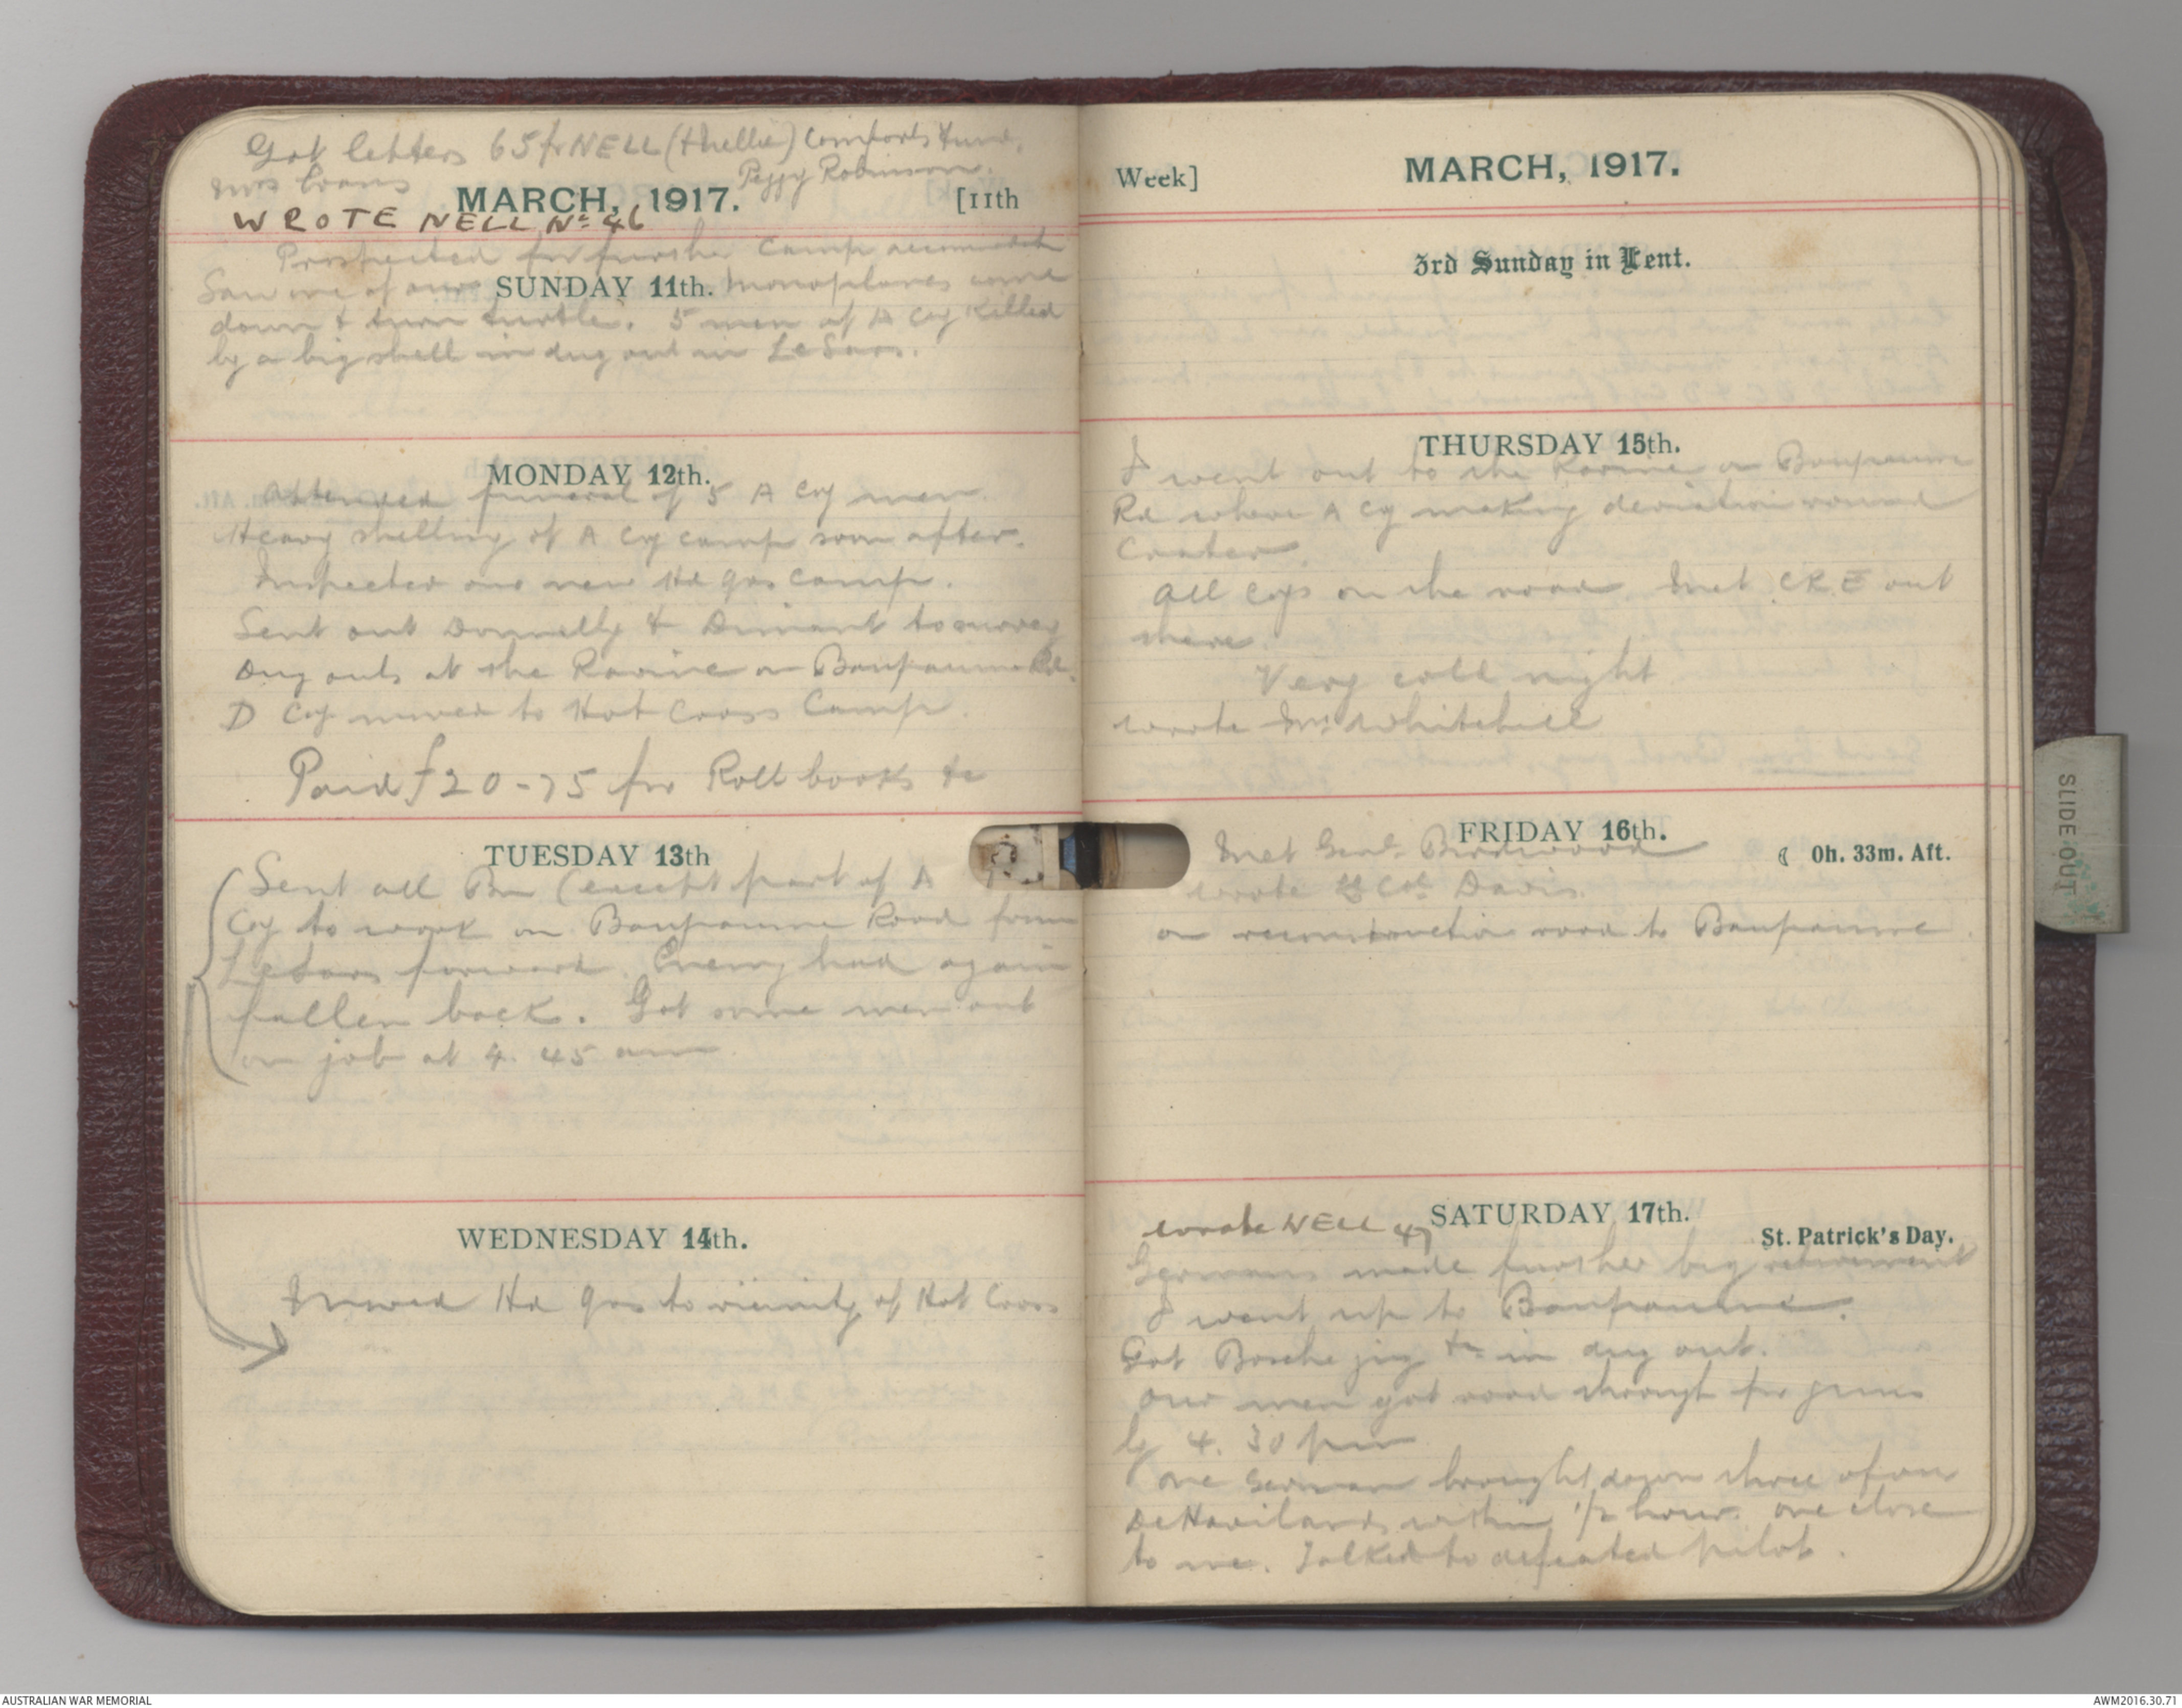 Got letters 65 fr NELL (& Nellie) Comforts Fund,
Mrs Evans Peggy Robinson.
MARCH, 1917. [11th
WROTE NELL No 46
Prospected for further camp accomodatn
SUNDAY 11th.
Saw one of our monoplanes come
down & turn turtle. 5 men of A Coy killed
by a big shell in dug out in Le Sars.
MONDAY 12th.
Attended funeral of 5 A Coy men.
Heavy shelling of A Coy camp soon after.
Inspected our new Hd Qrs camp.
Sent out Donnelly & Dimant to survey
Dug outs at the Ravine on Baupaume Rd.
D Coy moved to Hot Cross Camp.
Paid £20-75 for Roll books &c
TUESDAY 13th
Sent all Bn (except part of A
Coy to work on Baupaume Road from
Le Sars forward. Enemy had again
fallen back. Got some men out
on job at 4.45 am
WEDNESDAY 14th.
Moved Hd Qrs to vicinity of Hot Cross
Week] MARCH, 1917.
3rd Sunday in Lent.
THURSDAY 15th.
I went out to the Ravine on Baupaume
Rd where A Cy making deviation round
Crater.
All Coys on the road. Met CRE out
there.
Very cold night
wrote Mr Whitehill
FRIDAY 16th.
☾ 0h. 33m. Aft.
Met Genl. Birdwood
wrote Lt Col Davis.
on reconstruction road to Baupaume.
SATURDAY 17th.
St. Patrick's Day.
wrote NELL 47
Germans made further big retirement
I went up to Baupaume.
Got Bosche jug &c in dug out.
Our men got road through for guns
by 4.30 pm
One German brought down three of our
De Havilands within 1/2 hour. one close
to me. Talked to defeated pilot.
SLIDE OUT
AUSTRALIAN WAR MEMORIAL
AWM2016.30.71